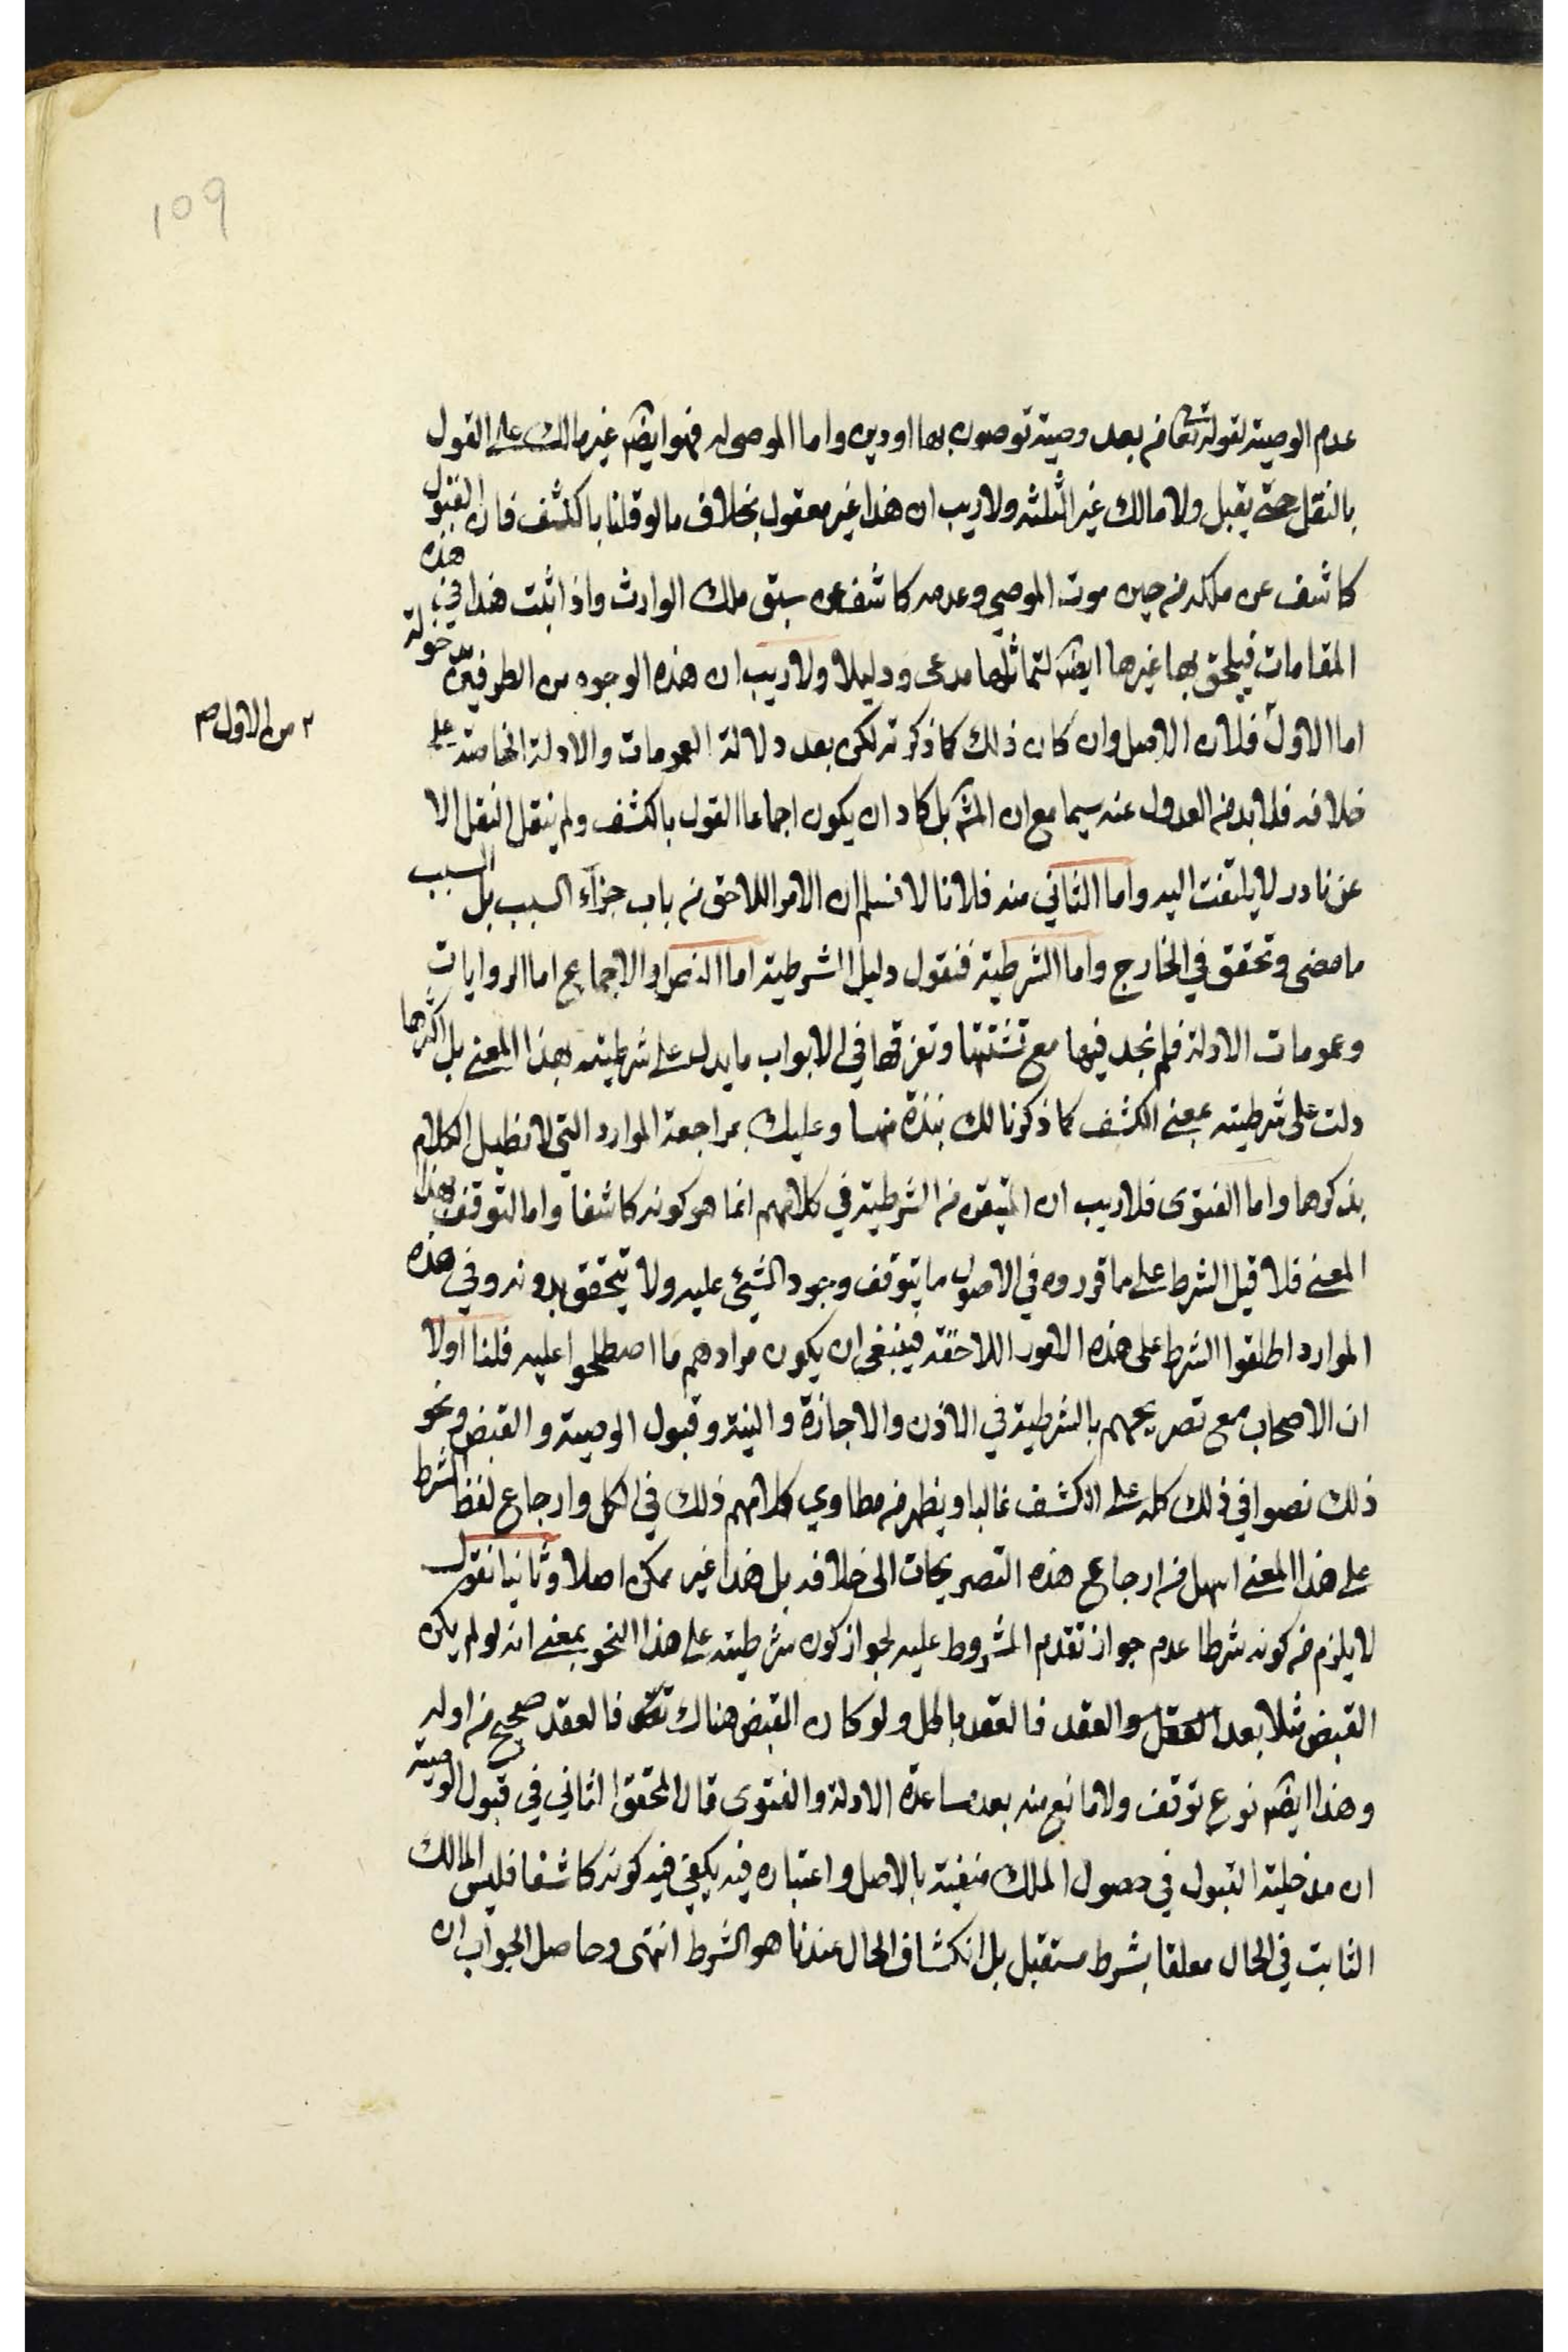 109
عدم الوصية لقوله تعا من بعد وصية توصون بها او دين واما الموصى له فهو ايضا غير مالك على القول
بالنقل حتى يقبل ولا مالك غير الثلثة ولا ريب ان هذا غير معقول بخلاف ما لو قلنا بالكشف فان القبول
كاشف عن ملكه من حين موت الموصي وعدمه كاشف عن سبق ملك الوارث واذا ثبت هذا في هذه
المقامات فيلحق بها غيرها ايضا لتماثلها مدعى ودليلا ولا ريب ان هذه الوجوه من الطرفين مدخولة
اما الاول فلان الاصل وان كان ذلك كما ذكرته لكن بعد دلالة العمومات والادلة الخاصة على
٢ من الاول صح
خلافه فلا بد من العدول عنه سيما مع ان المشهـ بل كاد ان يكون اجماعا القول بالكشف ولم ينقل النقل الا
عن نادر لا يلتفت اليه واما الثاني منه فلانا لا نسلم ان الامر اللاحق من باب جزاء السبب بل السبب
ما مضى وتحقق في الخارج واما الشرطية فنقول دليل الشرطية اما النص او الاجماع اما الروايات
وعمومات الادلة فلم نجد فيها مع تشتتها وتفرقها في الابواب ما يدل على شرطيته بهذا المعنى بل اكثرها
دلت على شرطيته بمعنى الكشف كما ذكرنا لك نبذة منها وعليك بمراجعة الموارد التي لا نطيل الكلام
بذكرها واما الفتوى فلا ريب ان المتيقن من الشرطية في كلامهم انما هو كونه كاشفا واما التوقف بهذا
المعنى فلا قيل الشرط على ما قرروه في الاصول ما يتوقف وجود الشيئ عليه ولا يتحقق بدونه وفي هذه
الموارد اطلقوا الشرط على هذه الامور اللاحقة فينبغي ان يكون مرادهم ما اصطلحوا عليه قلنا اولا
ان الاصحاب مع تصريحهم بالشرطية في الاذن والاجازة والنية وقبول الوصية والقبض ونحو
ذلك نصوا في ذلك كله على الكشف غالبا ويظهر من مطاوي كلامهم ذلك في الكل وارجاع لفظ الشرط
على هذا المعنى اسهل من ارجاع هذه التصريحات الى خلافه بل هذا غير ممكن اصلا وثانيا نقول
لا يلزم من كونه شرطا عدم جواز تقدم المشروط عليه لجواز كون شرطيته على هذا النحو بمعنى انه لو لم يكن
القبض مثلا بعد العقل والعقد فالعقد باطل ولو كان القبض هناك فالعقد صحيح من اوله
وهذا ايضا نوع توقف ولا مانع منه بعد مساعدة الادلة والفتوى قال المحقق الثاني في قبول الوصية
ان مدخلية القبول في حصول الملك منفية بالاصل واعتباره فيه يكفي فيه كونه كاشفا فليس المالك
الثابت في الحال معلقا بشرط مستقبل بل انكشاف الحال عندنا هو الشرط انتهى وحاصل الجواب ان